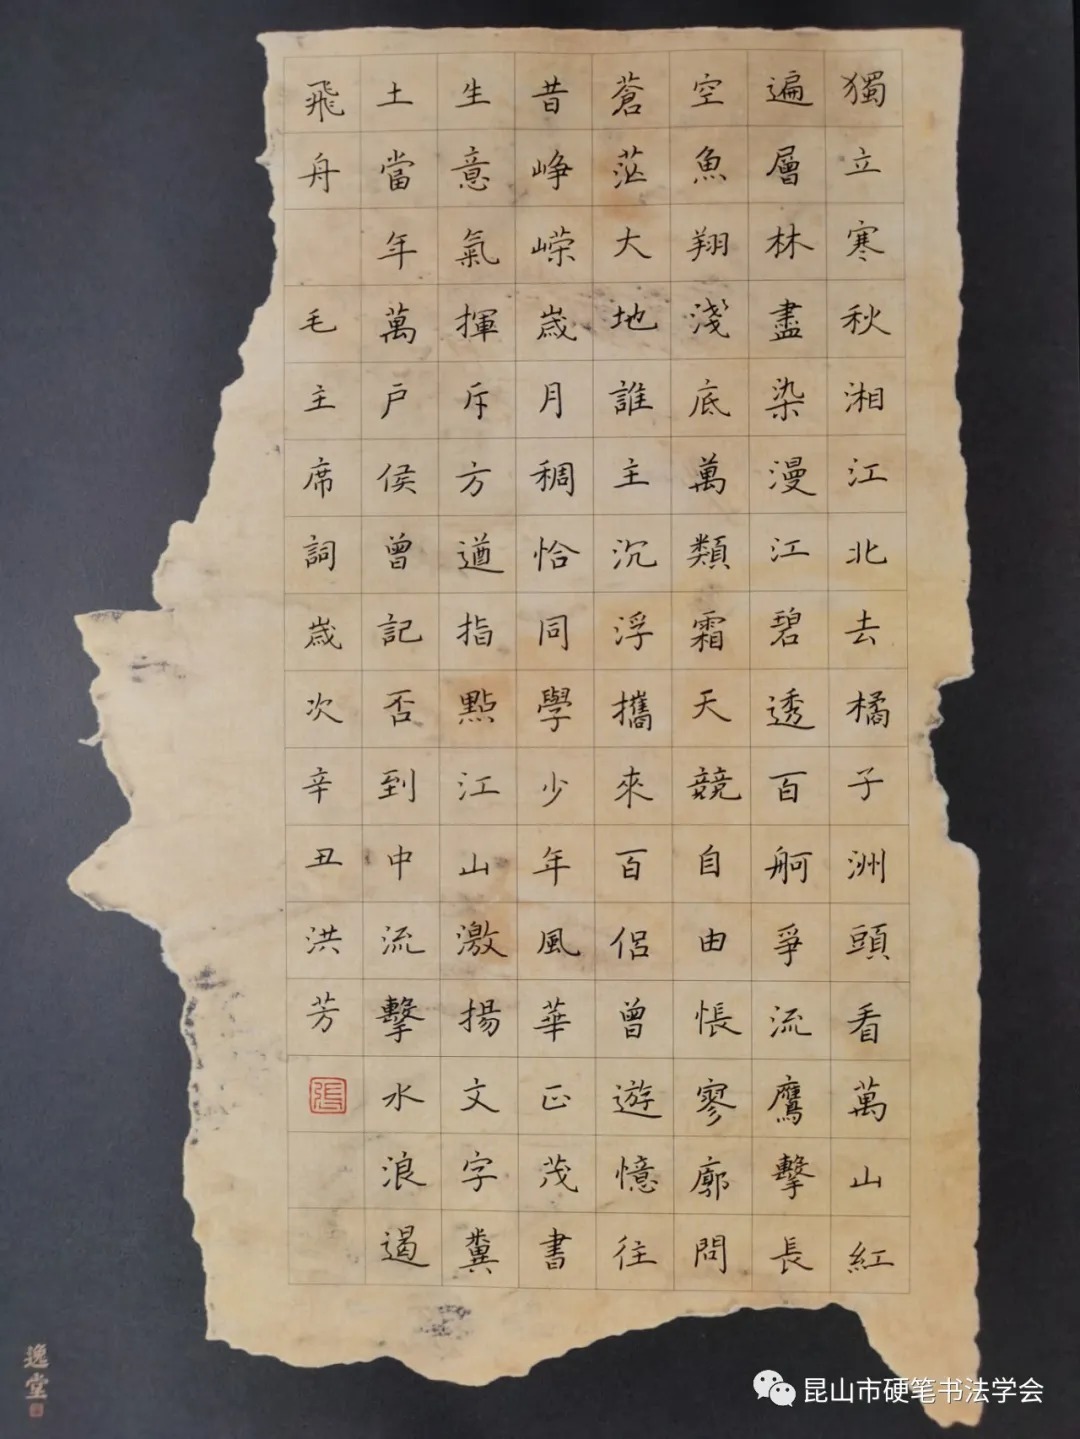 獨立寒秋湘江北去橘子洲頭看萬山紅
遍層林盡染漫江碧透百舸爭流鷹擊長
空魚翔淺底萬類霜天競自由悵寥廓問
蒼茫大地誰主沉浮攜來百侶曾遊憶往
昔崢嶸歲月稠恰同學少年風華正茂書
生意氣揮斥方遒指點江山激揚文字糞
土當年萬戶侯曾記否到中流擊水浪遏
飛舟 毛主席詞歲次辛丑洪芳
張
逸堂
昆山市硬笔书法学会